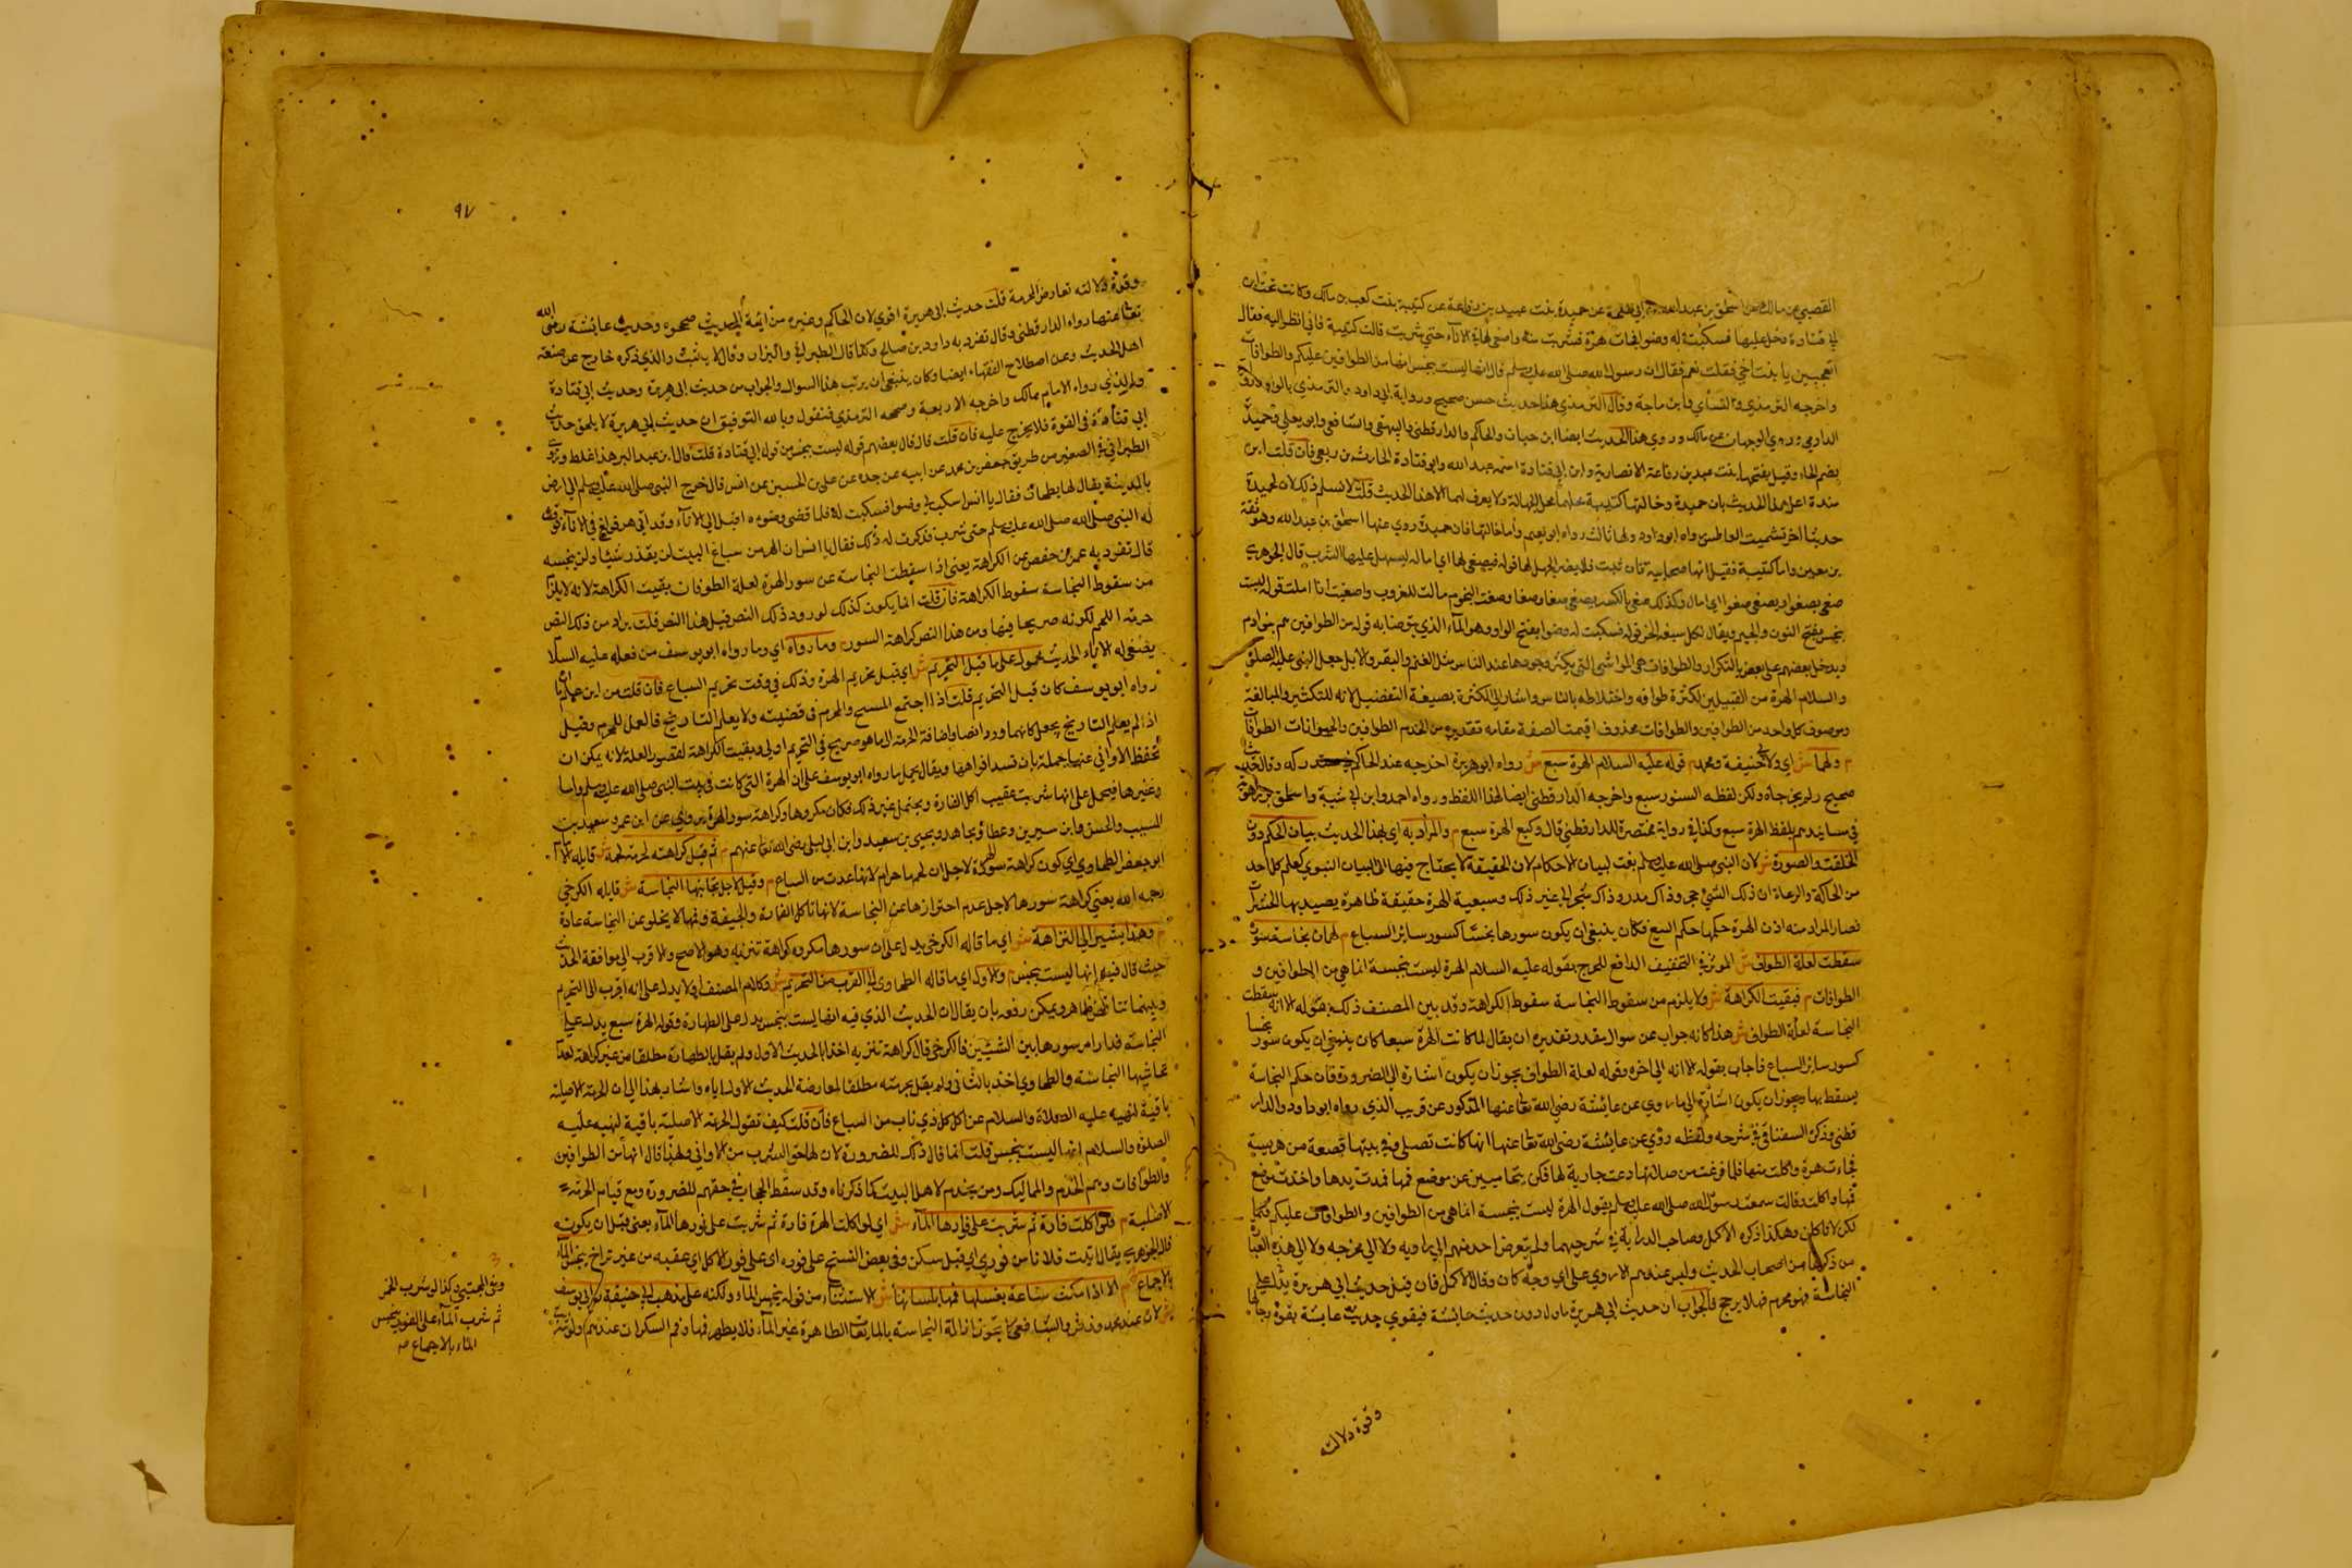 القصبي عن مالك عن اسحق بن عبد الله بن ابي طلحة عن حميدة بنت عبيد بن رفاعة عن كبشة بنت كعب بن مالك وكانت تحت ابن
ابي قتادة دخل عليها فسكبت له وضوا فجات هرة فشربت منه واصغى لها الاناء حتى شربت قالت كبشة فاني انظر اليه فقال
اتعجبين يا بنت اخي فقلت نعم فقال ان رسول الله صلى الله عليه وسلم قال انها ليست بنجس انها من الطوافين عليكم والطوافات
واخرجه الترمذي والنسأي وابن ماجة وقال الترمذي هذا حديث حسن صحيح ورواية ابي داود والترمذي بالواو
الدارمي روي الوجهان عن مالك وروي هذا الحديث ايضا ابن حبان والحاكم والدارقطني والبيهقي والشافعي وابو يعلى وحميدة
بضم الحاء وقيل بفتحها بنت عبيد بن رفاعة الانصارية وابن ابي قتادة اسمه عبد الله وابو قتادة الحارث بن ربعي فان قلت ابن
مندة اعل هذا الحديث بان حميدة وخالتها كبشة محلهما محل الجهالة ولا يعرف لهما الا هذا الحديث قلت لا نسلم ذلك لان لحميدة
حديثا اخر تشميت العاطس رواه ابو داود ولها ثالث رواه ابو نعيم واما خالتها فان حميدة روي عنها اسحق بن عبد الله وهو ثقة
بن معين واما كبشة فقيل انها صحابية فان ثبت فلا يضر الجهل لها قوله فيصغي لها اي امالة ليسهل عليها الشرب قال الجوهري
صغى يصغو ويصغي صغوا اي مال وكذلك صغي بالكسر يصغى صغا وصغيا وصغت النجوم مالت للغروب واصغيت انا املت قوله ليست
بنجس بفتح النون والجيم ويقال لكل قوله فسكبت له وضوا بفتح الواو وهو الماء الذي يتوضا به قوله من الطوافين هم بنو ادم
ويدخل بعضهم على بعض بالتكرار والطوافات هي المواشي التي يكثر وجودها عند الناس مثل الغنم والبقر والابل جعل النبي عليه الصلوة
والسلام الهرة من القبيلين لكثرة طوافه واختلاطه بالناس واشار الى الكثرة بصيغة التفضيل لانه للتكثير والمبالغة
وموصوف كل واحد من الطوافين والطوافات محذوف اقيمت الصفة مقامه تقديره من الخدم الطوافين والحيوانات الطوافات
م ولهما ش اي ولابي حنيفة ومحمد م قوله عليه السلام الهرة سبع ش رواه ابو هريرة اخرجه عند الحاكم في مستدركه وقال حديث
صحيح ولم يخرجاه ولكن لفظه السنور سبع واخرجه الدارقطني ايضا بهذا اللفظ ورواه احمد وابن ابي شيبة واسحق بن راهويه
في مسانيدهم بلفظ الهرة سبع وكذا في رواية مختصرة للدارقطني قال وكيع الهرة سبع م والمراد به اي بهذا الحديث بيان الحكم دون
الخلقة والصورة ش لان النبي صلى الله عليه وسلم بعث لبيان الاحكام لان الحقيقة لا يحتاج فيها الى البيان النبوي كعلم كل احد
من الحاكة والرعاة ان ذلك الشي حجر وذاك مدر وذاك شجر الى غير ذلك وسبعية الهرة حقيقة ظاهرة يصيد بها الحشرات
فصار المراد منه اذن الهرة حكمها حكم السبع فكان ينبغي ان يكون سورها نجسا كسور سائر السباع م لهما ان نجاسة سوره
سقطت لعلة الطواف ش الموثر في التخفيف الدافع للحرج بقوله عليه السلام الهرة ليست بنجسة انما هي من الطوافين و
الطوافات م فبقيت الكراهة ش ولا يلزم من سقوط النجاسة سقوط الكراهة وقد بين المصنف ذلك بقوله الا انه سقطت
النجاسة لعلة الطواف ش هذا كانه جواب عن سوال مقدر وتقديره ان يقال لما كانت الهرة سبعا كان ينبغي ان يكون سورها نجسا
كسور سائر السباع فاجاب بقوله الا انه الى اخره وقوله لعلة الطواف يجوز ان يكون اشارة الى الضرورة فان حكم النجاسة
يسقط بها ويجوز ان يكون اشارة الى ما روي عن عايشة رضي الله تعا عنها المذكور عن قريب الذي رواه ابو داود والدار
قطني وذكر السغناقي في شرحه ولفظه وروي عن عايشة رضي الله تعا عنها انها كانت تصلي وفي بيتها قصعة من هريسة
فجاءت هرة واكلت منها فلما فرغت من صلاتها دعت جارية لها فكن يتحامين عن موضع فمها فمدت يدها واخذت موضع
فمها واكلت وقالت سمعت رسول الله صلى الله عليه وسلم يقول الهرة ليست بنجسة انما هي من الطوافين والطوافات عليكم فما
لكن لا تاكلن وهكذا ذكره الاكمل وصاحب الدراية في شرحيهما ولم يتعرض احد منهم الى راويه ولا الى مخرجه ولا الى هذه العبارة
من ذكرها من اصحاب الحديث وليس عندهم الا روي على اي وجه كان وقال الاكمل فان قيل حديث ابي هريرة يدل على
النجاسة فهو محرم فهلا يرجح فالجواب ان حديث ابي هريرة ماول دون حديث عائشة فيقوي حديث عايشة بقوة رجالها
وقوة دلالته
٩٧
وقوة دلالته تعارض الحرمة قلت حديث ابي هريرة اقوي لان الحاكم وغيره من ائمة الحديث صححوه وحديث عايشة رضي الله
تعا عنها رواه الدارقطني وقال تفرد به داود بن صالح وكذا قال الطبراني والبزار وقال لا يثبت والذي ذكره خارج عن صنعة
اهل الحديث وعن اصطلاح الفقهاء ايضا وكان ينبغي ان يرتب هذا السوال والجواب من حديث ابي هريرة وحديث ابي قتادة
الذي رواه الامام مالك واخرجه الاربعة وصححه الترمذي فنقول وبالله التوفيق ان حديث ابي هريرة لا يلحق حديث
ابي قتادة في القوة فلا يخرج عليه فان قلت قال بعضهم قوله ليست بنجس من قول ابي قتادة قلت قال ابن عبد البر هذا غلط وروي
الطبراني في الصغير من طريق جعفر بن محمد عن ابيه عن جده عن علي بن الحسين عن انس قال خرج النبي صلى الله عليه وسلم الى ارض
بالمدينة يقال لها بطحان فقال يا انس اسكب لي وضوا فسكبت له فلما قضى وضوءه اقبل الى الاناء وقد اتى هر فولغ في الاناء فوقف
له النبي صلى الله عليه وسلم حتى شرب فذكرت له ذلك فقال يا انس ان الهر من سباع البيت لن يقذر شيئا ولن ينجسه
قال تفرد به عمر بن حفص من الكراهة يعني اذا سقطت النجاسة عن سور الهرة لعلة الطوفان بقيت الكراهة لانه لا يلزم
من سقوط النجاسة سقوط الكراهة فان قلت انما يكون كذلك لو ورود ذلك النص قبل هذا النص قلت يراد من ذلك النص
حرمة اللحم لكونه صريحا فيها ومن هذا النص كراهة السور م وما رواه اي وما رواه ابو يوسف من فعله عليه السلام
يصغي له الاناء الحديث محمول على ما قبل التحريم ش اي قبل تحريم الهرة وذلك في وقت تحريم السباع فان قلت من اين
رواه ابو يوسف كان قبل التحريم قلت اذا اجتمع المبيح والمحرم في قضيته ولا يعلم التاريخ فالعمل للمحرم وقيل
اذا لم يعلم التاريخ يجعل كانهما وردا نصا واضافة الحرمة الى ما هو صريح في التحريم اولى وبقيت الكراهة لقصور العلة لانه يمكن ان
تحفظ الاواني عنها بحملة بان تسد افواهها ويقال يحمل ما رواه ابو يوسف على ان الهرة التي كانت في بيت النبي صلى الله عليه وسلم واما
وغيرها فيحمل على انها شربت عقيب اكل الفارة ويحتمل غير ذلك فكان مكروها وكراهة سور الهرة مروي عن ابن عمر وسعيد بن
المسيب والحسن وابن سيرين وعطاء ومجاهد ويحيى بن سعيد وابن ابي ليلى رضي الله تعا عنهم م ثم قيل كراهته لحرمة لحمه ش قايله
ابو جعفر الطحاوي اي كون كراهة سور الهرة لاجل ان لحمها حرام لانها عدت من السباع م وقيل لاجل تحاميها النجاسة ش قايله الكرخي
رحمه الله يعني كراهة سورها لاجل عدم احترازها عن النجاسة لانها تاكل الفارة والجيفة وفمها لا يخلو عن النجاسة عادة
م وهذا يشير الى التنزه ش اي ما قاله الكرخي يدل على ان سورها مكروه كراهة تنزيه وهو الاصح والاقرب الى موافقة الحديث
حيث قال فيه انها ليست بنجس م والاول اي ما قاله الطحاوي الى القرب من التحريم ش وكلام المصنف اولا يدل على انه اقرب الى التحريم
وبينهما تناقض ظاهر ويمكن رفعه بان يقال ان الحديث الذي فيه انها ليست بنجس يدل على الطهارة وقوله الهرة سبع يدل على
النجاسة فدار امر سورها بين الشيئين فالكرخي قال كراهة تنزيه اخذا بالحديث الاول ولم يقل بالطهارة مطلقا من غير كراهة لعدم
تحاشيها النجاسة والطحاوي اخذ بالثاني ولم يقل بحرمته مطلقا لمعارضة الحديث الاول اياه واشار بهذا الى ان الحرمة الاصلية
باقية لنهيه عليه الصلاة والسلام عن اكل كل ذي ناب من السباع فان قلت كيف تقول الحرمة الاصلية باقية لنهيه عليه
الصلوة والسلام انها ليست بنجس قلت انما قال ذلك للضرورة لان لها حق الشرب من الاواني ولهذا قال انها من الطوافين
والطوافات وهم الخدم والمماليك ومن يخدم لاهل البيت كما ذكرناه وقد سقط الحجاب في حقهم للضرورة ومع قيام الحرمة
الاصلية م فلو اكلت فارة ثم شربت على فورها الماء ش اي لو اكلت الهرة فارة ثم شربت على فورها الماء يعني قبل ان
قال الجوهري يقال اتيت فلانا من فوري اي قبل سكن وفي بعض النسخ على فوره اي على فور الاكل اي عقبه من غير تراخ ينجس الماء
بالاجماع م الا اذا مكث ساعة بغسلها فمها بلسانها ش الاستثناء من قوله ينجس الماء ولكنه على مذهب ابي حنيفة وابي يوسف
لان عند محمد وزفر والشافعي لا يجوز ازالة النجاسة بالمايعات الطاهرة غير الماء فلا يطهر فمها وفم السكران عندهم
وفي المجتبى وكذا لو شرب الخمر
ثم شرب الماء على الفور ينجس
الماء بالاجماع